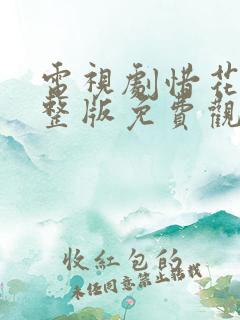 電視劇惜花
整版免費觀
收紅包的
未经同意禁止转载